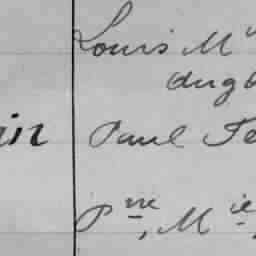 Louis M
dugb
in Paul Fe
Pre, Mie,